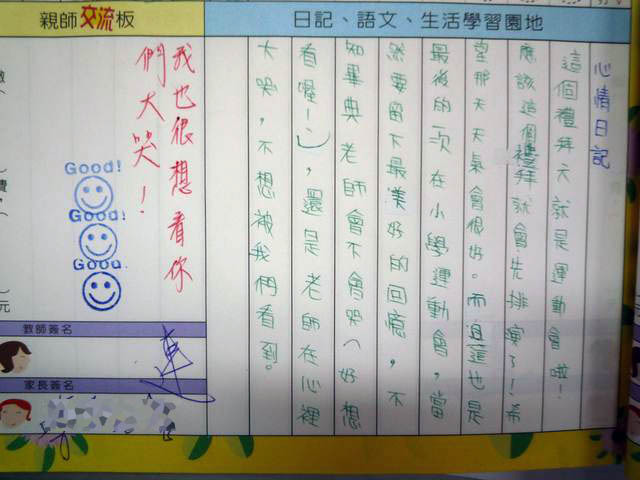 日記、語文、生活學習園地
心情日記
這個禮拜天就是運動會啦!
應該這個禮拜就會先排演了!希
望那天天氣會很好。而且這也是
最後的一次在小學運動會,當
然要留下最美好的回憶,不
知畢典老師會不會哭(好想
看喔!:),還是老師在心裡
大哭,不想被我們看到。
親師交流板
我也很想看你
們大哭!
Good!
Good!
Good.
教師簽名
家長簽名
元